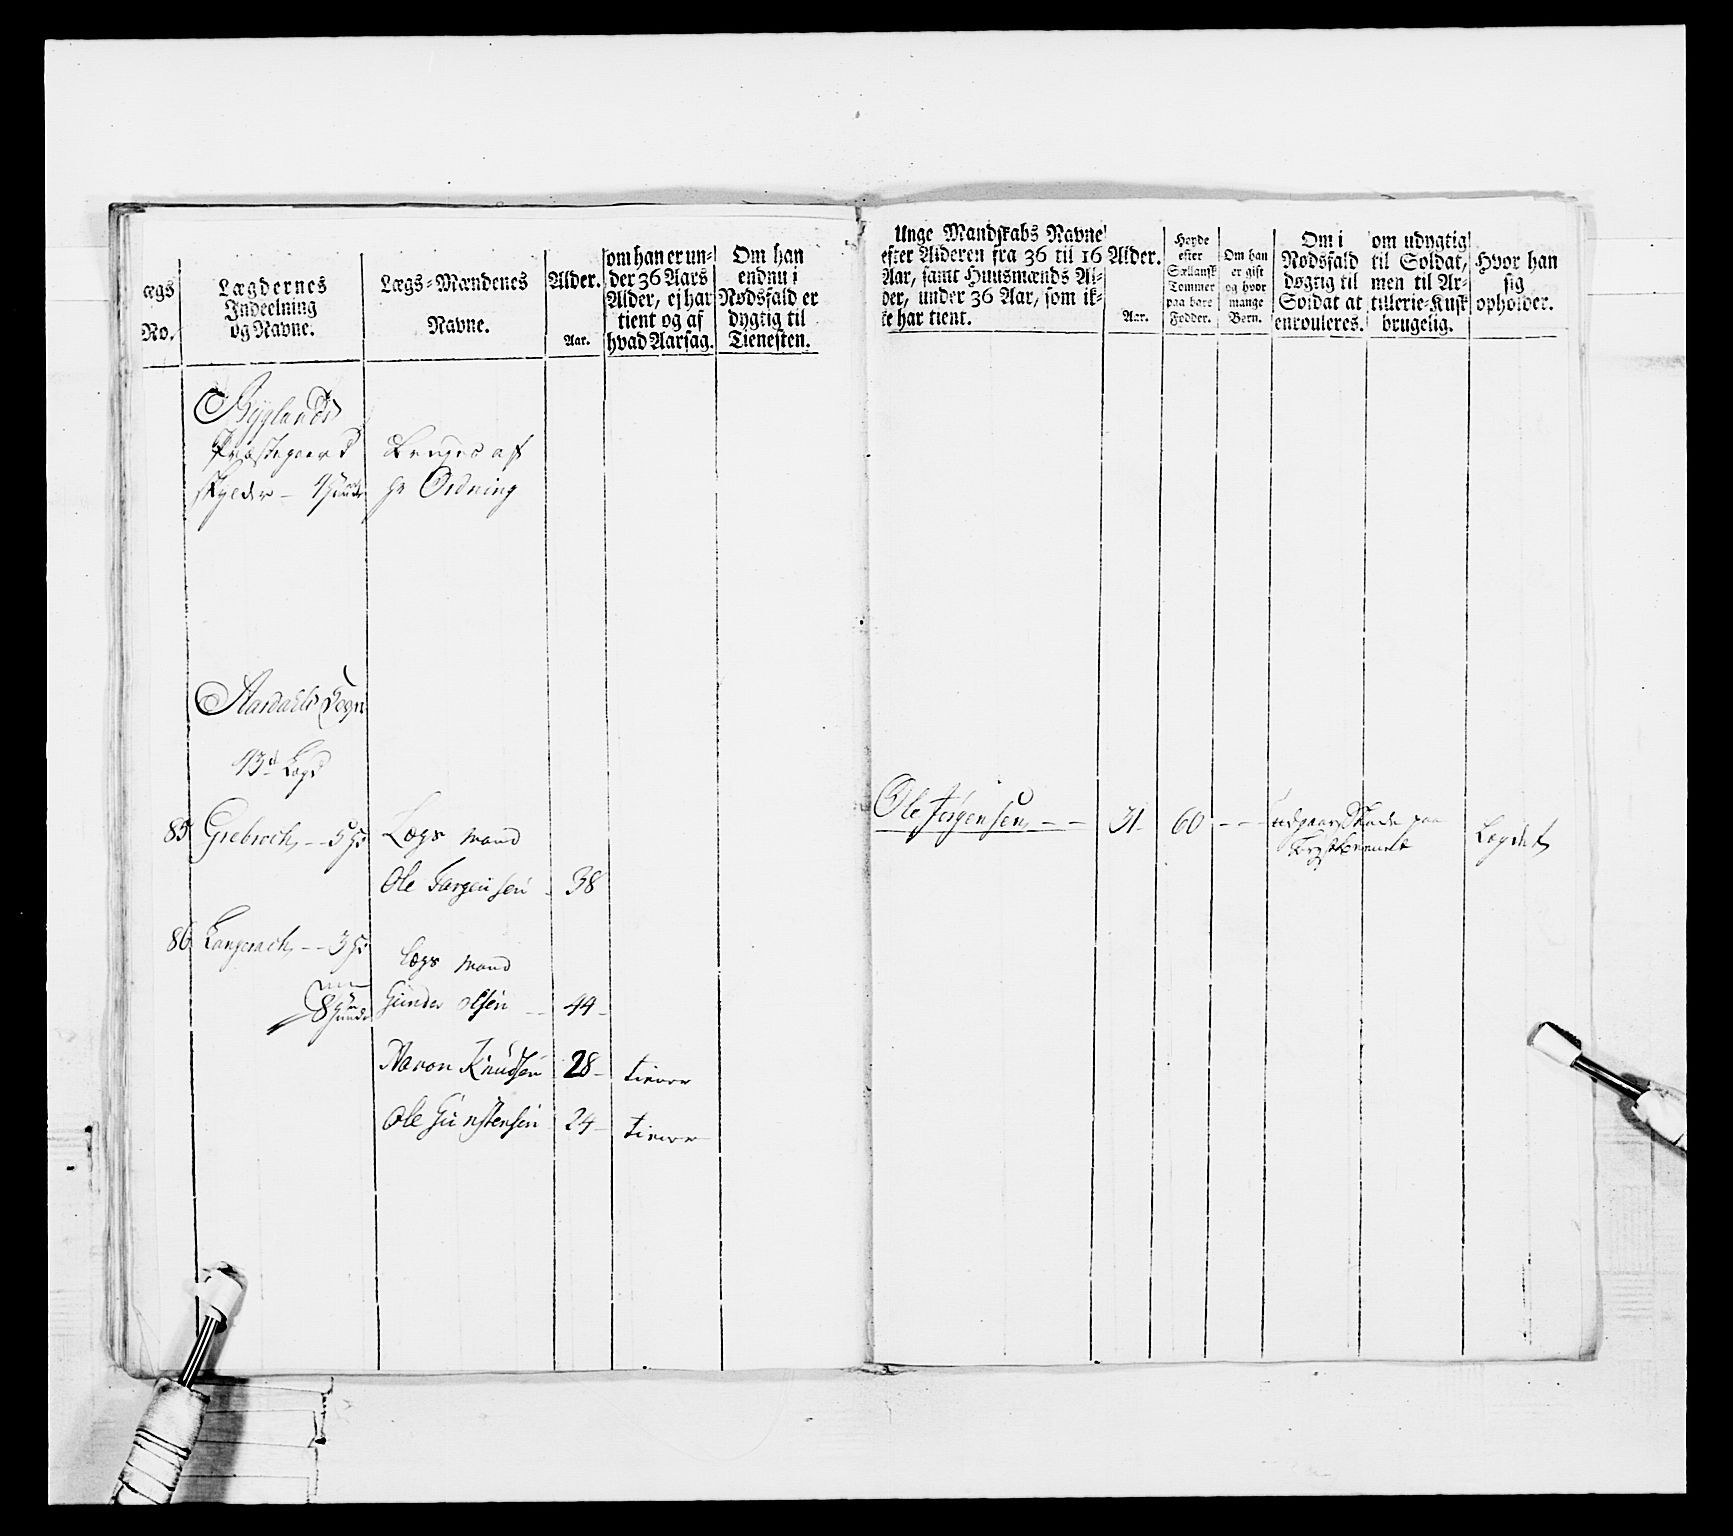 ægs
No.
Lægdernes
Indeelning
og Navne.
Lægs-Mændenes
Navne.
Alder.
Aar.
om han er un-
der 36 Aars
Alder, ej har
tient og af
hvad Aarsag.
Om han
endnu i
Nødsfald er
dygtig til
Tienesten.
Byglands
Præstegaard
skylder - 1 Hude
Bruges af
Hr Ordning
Aardahls Sogn
13d Lægd
85 Grebroch, - - 5 Hr
Lægs Mand
Ole Targeusen - 38
86 Langerach, - - 3 Hr
Lægs Mand
8 Huder
Gunder Olsen - - 44 -
Aaron Knudsen 28 - tiener
Ole Gunstensen 24 - tiener
Unge Mandskabs Navne
efter Alderen fra 36 til 16
Aar, samt Huusmænds Al-
der, under 36 Aar, som ik-
ke har tient.
Alder.
Aar.
Høyde
efter
Sællansk
Tommer
paa bare
Fødder.
Om han
er gift
og hvor
mange
Børn.
Om i
Nødsfald
dygtig til
Soldat at
enrouleres.
om udygtig
til Soldat,
men til Ar-
tillerie-Kusk
brugelig.
Hvor han
sig
opholder.
Ole Jørgensen, - - 31 - 60 - - - Skade paa
Lægdet